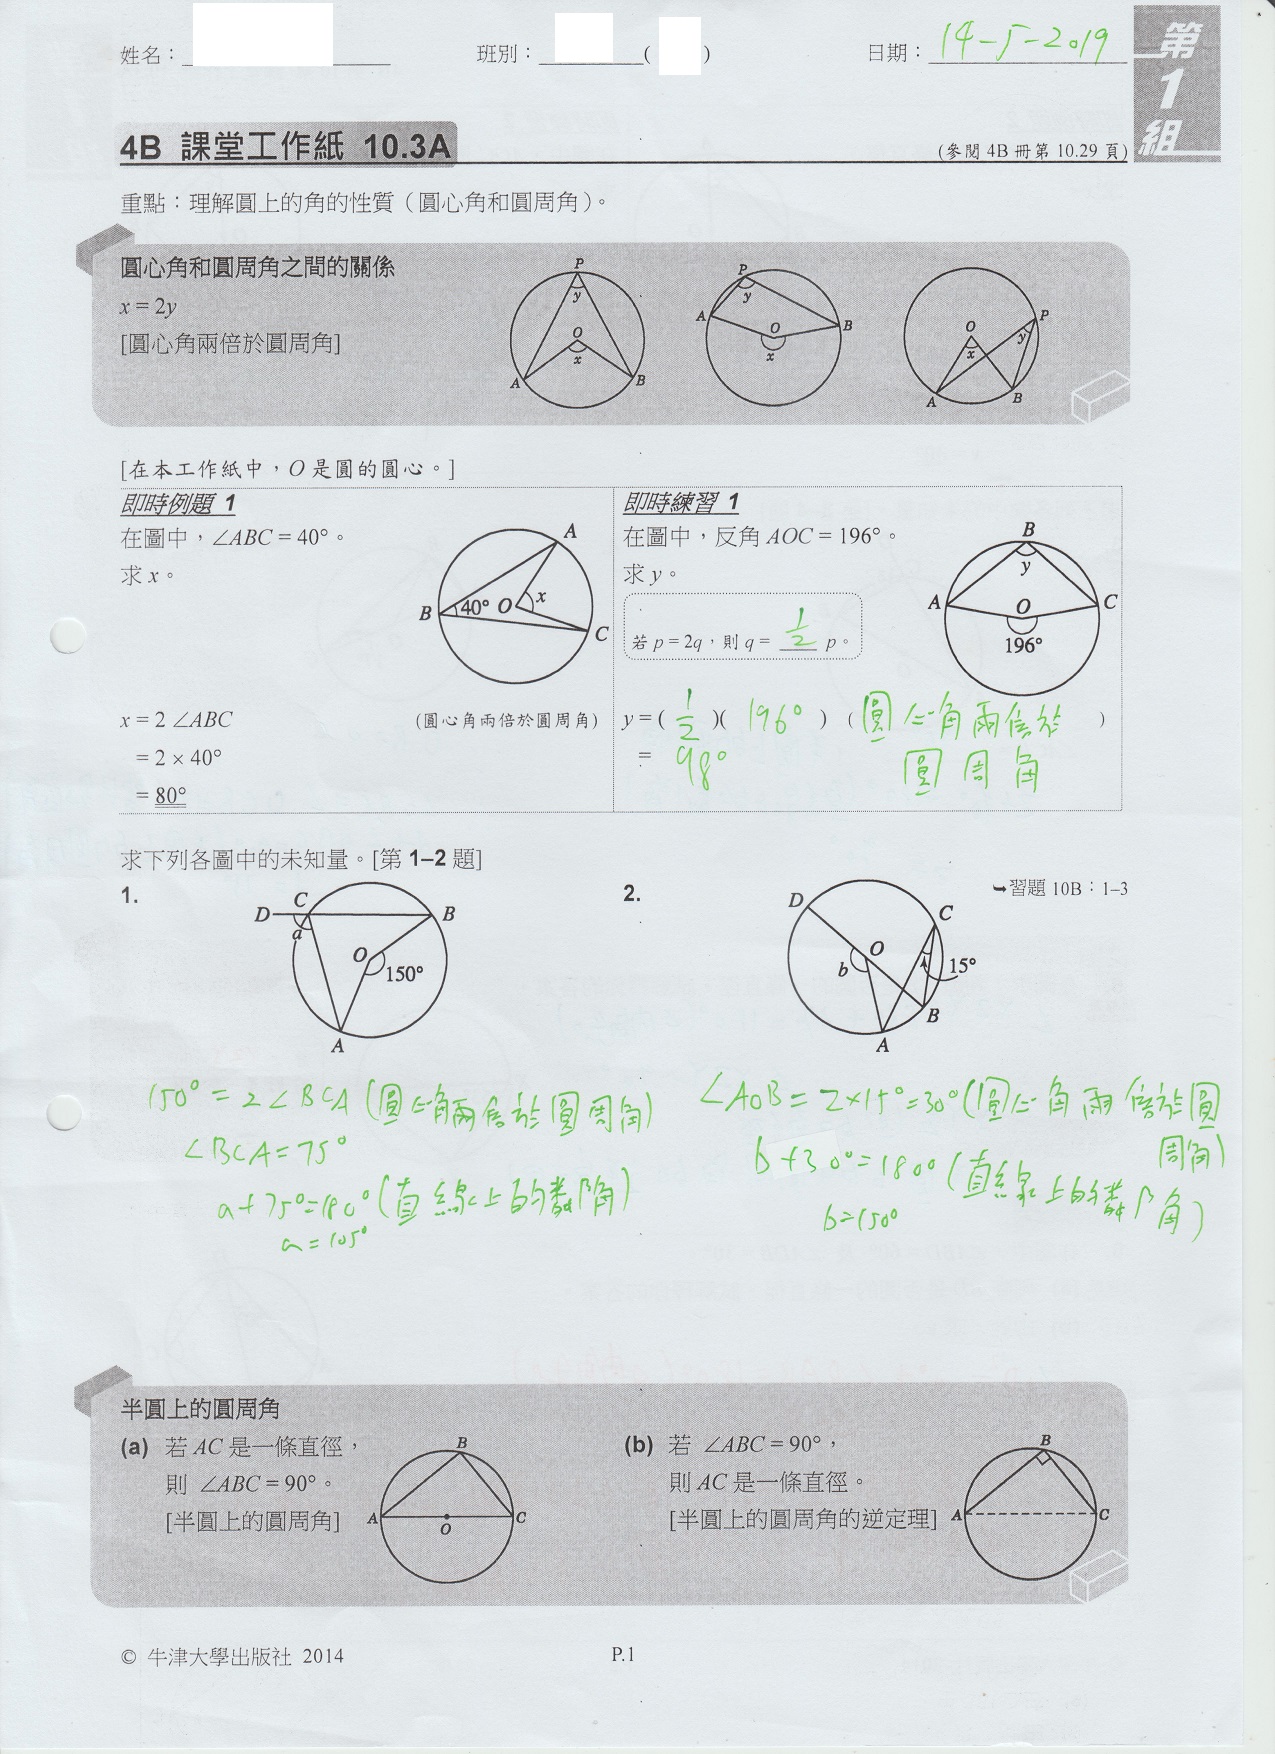 姓名： 班別： ( ) 日期：14-5-2019
第1組
4B 課堂工作紙 10.3A
(參閱 4B 冊第 10.29 頁)
重點：理解圓上的角的性質（圓心角和圓周角）。
圓心角和圓周角之間的關係
x = 2y
[圓心角兩倍於圓周角]
P y O x A B
P y A O B x
O P x y A B
[在本工作紙中，O 是圓的圓心。]
即時例題 1
在圖中，∠ABC = 40°。
求 x。
A B 40° O x C
x = 2 ∠ABC (圓心角兩倍於圓周角)
= 2 × 40°
= 80°
即時練習 1
在圖中，反角 AOC = 196°。
求 y。
若 p = 2q，則 q = 1/2 p。
B y A O C 196°
y = ( 1/2 )( 196° ) (圓心角兩倍於圓周角)
= 98°
求下列各圖中的未知量。[第 1–2 題]
➥習題 10B：1–3
1.
D C B a O 150° A
150° = 2∠BCA (圓心角兩倍於圓周角)
∠BCA = 75°
a + 75° = 180° (直線上的鄰角)
a = 105°
2.
D C O b 15° B A
∠AOB = 2×15° = 30° (圓心角兩倍於圓周角)
b + 30° = 180° (直線上的鄰角)
b = 150°
半圓上的圓周角
(a) 若 AC 是一條直徑，
則 ∠ABC = 90°。
[半圓上的圓周角]
B A O C
(b) 若 ∠ABC = 90°，
則 AC 是一條直徑。
[半圓上的圓周角的逆定理]
B A C
© 牛津大學出版社 2014
P.1